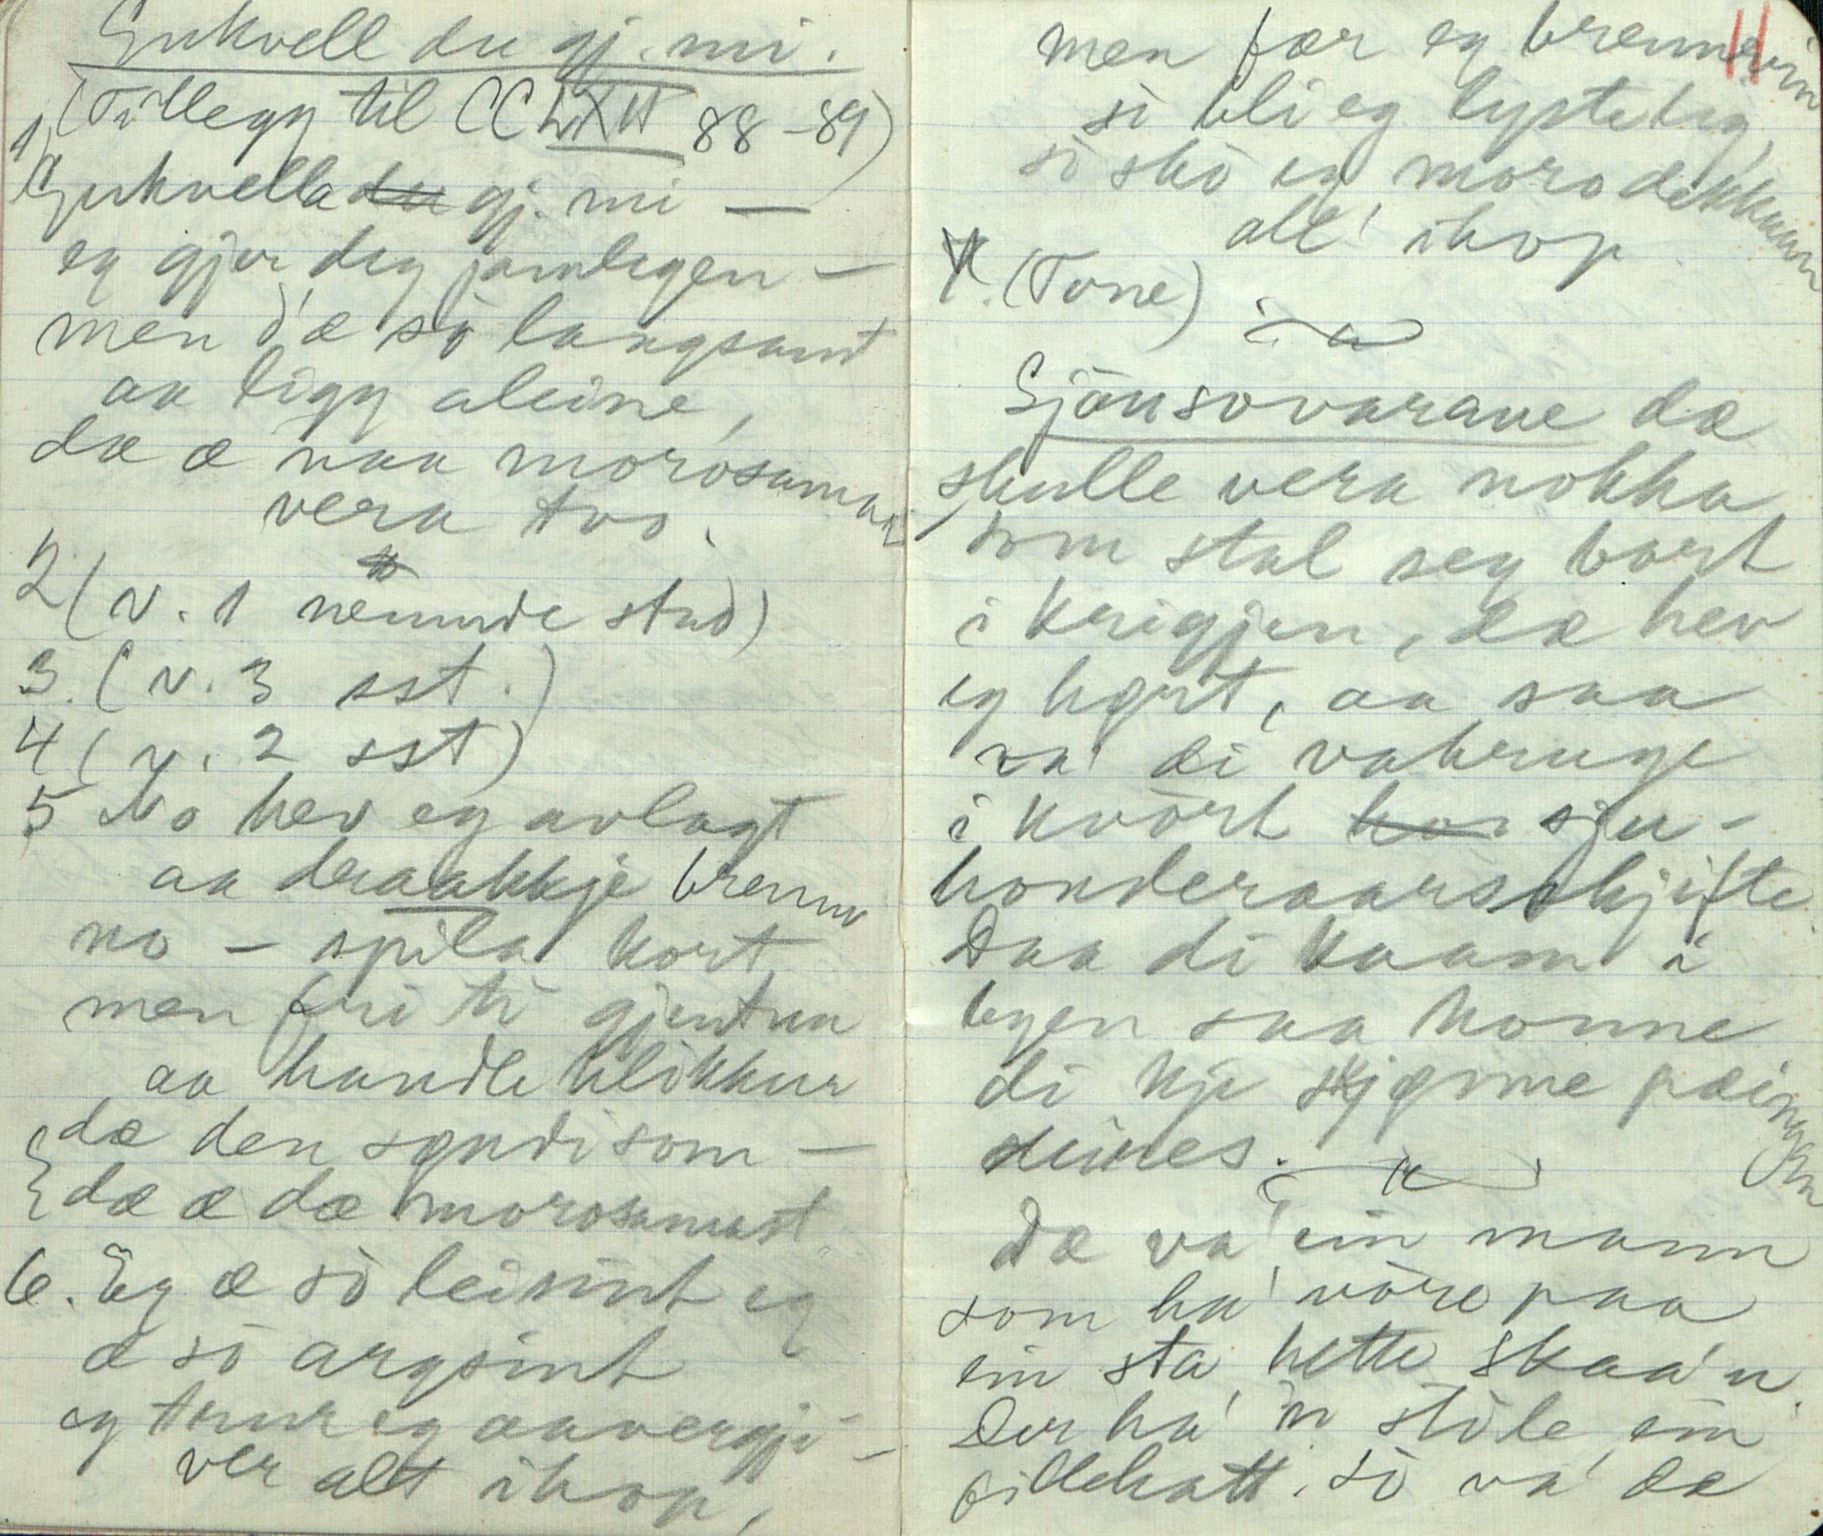 Gukvell du gj. mi.
(Tillegg til CCLXII 88-89)
1. Gukvella du gj. mi —
eg gjer deg jamlegen —
men d'æ sò langsamt
aa ligg aleine,
dæ æ naa morosamar
vera tvo.
2 (v. 1 nemnde stad)
3. (v. 3 sst.)
4 (v. 2 sst)
5 No hev eg avlagt
aa draakkje brennv
no — spila kort
men fri ti gjentun
aa handle klikkur
dæ den syndi som —
dæ æ dæ morosamast
6. Eg æ sò leisint eg
æ sò argsint
eg truur eg aavergji-
ver alt ihop,
11
men fær eg brennevin
sò bli eg lysteleg,
sò skò eg moro dekkunn
all' ihop
(Tone)
Sjönsovarane dæ
skulle vera nokka
som stal seg bort
i krigjen, dæ hev
eg høyrt, aa saa
va' di vakruge
i kvòrt sju-
honderaarsskjifte.
Daa di kaam i
byen saa konne
di kje skjøne pæingan
deires.
Dæ va' ein mann
som ha' vòre paa
ein sta, hette Skaa'n.
Der ha' 'n stòle ein
fillehatt. Sò va' dæ